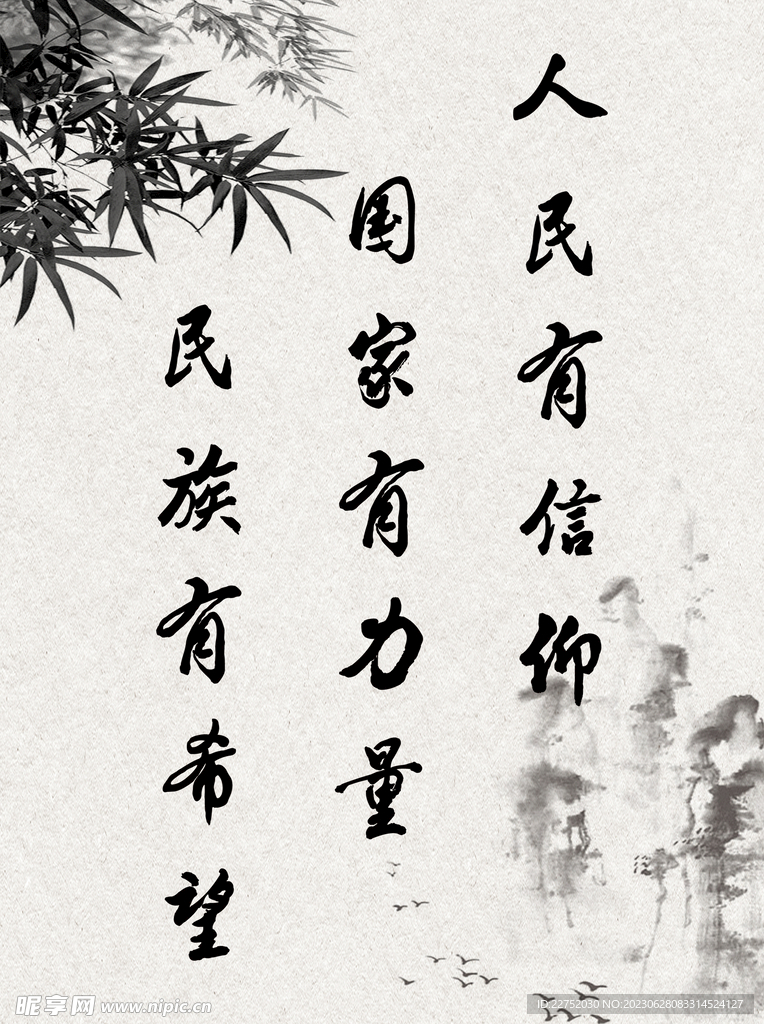 人民有信仰
国家有力量
民族有希望
昵享网 www.nipic.cn
ID:22752030 NO:20230628083314524127